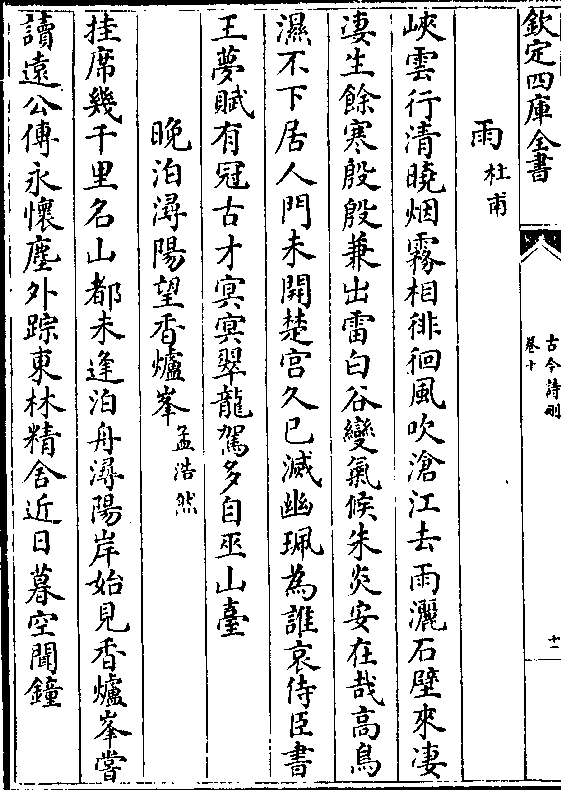 欽定四庫全書
古今詩刪
卷十
十二
雨 杜甫
峽雲行清曉烟霧相徘徊風吹滄江去雨灑石壁來凄
凄生餘寒殷殷兼出雷白谷變氣候朱炎安在哉高鳥
濕不下居人門未開楚宮久已滅幽珮為誰哀侍臣書
王夢賦有冠古才冥冥翠龍駕多自巫山臺
晚泊潯陽望香爐峯 孟浩然
挂席幾千里名山都未逢泊舟潯陽岸始見香爐峯嘗
讀遠公傳永懷塵外踪東林精舍近日暮空聞鐘